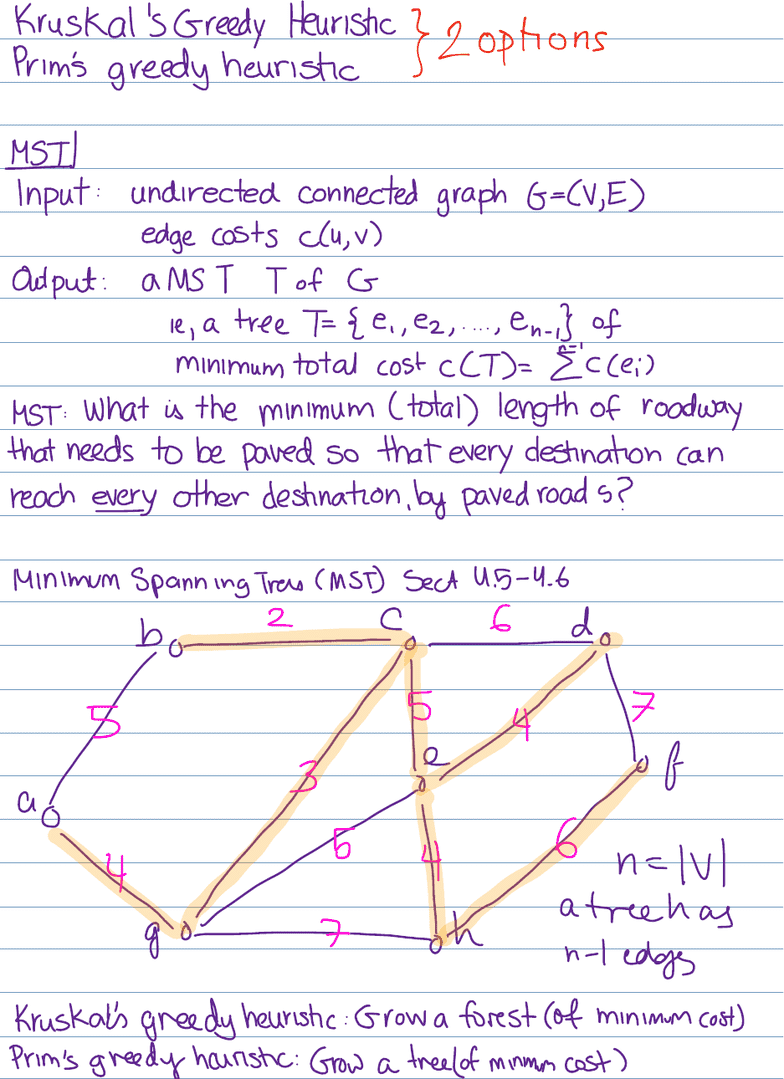 Kruskal's Greedy Heuristic } 2 options
Prim's greedy heuristic
MST
Input: undirected connected graph G=(V,E)
edge costs c(u,v)
Output: a MST T of G
ie, a tree T= { e1, e2, ...., en-1} of
minimum total cost c(T)= n-1 ∑ c(ei)
MST: What is the minimum (total) length of roadway
that needs to be paved so that every destination can
reach every other destination, by paved roads?
Minimum Spanning Trees (MST) Sect 4.5-4.6
b 2 c 6 d
5 5 4 7
e
a 3 f
4 4 6
n = |V|
g 7 h
a tree has
n-1 edges
Kruskal's greedy heuristic: Grow a forest (of minimum cost)
Prim's greedy heuristic: Grow a tree (of minimum cost)